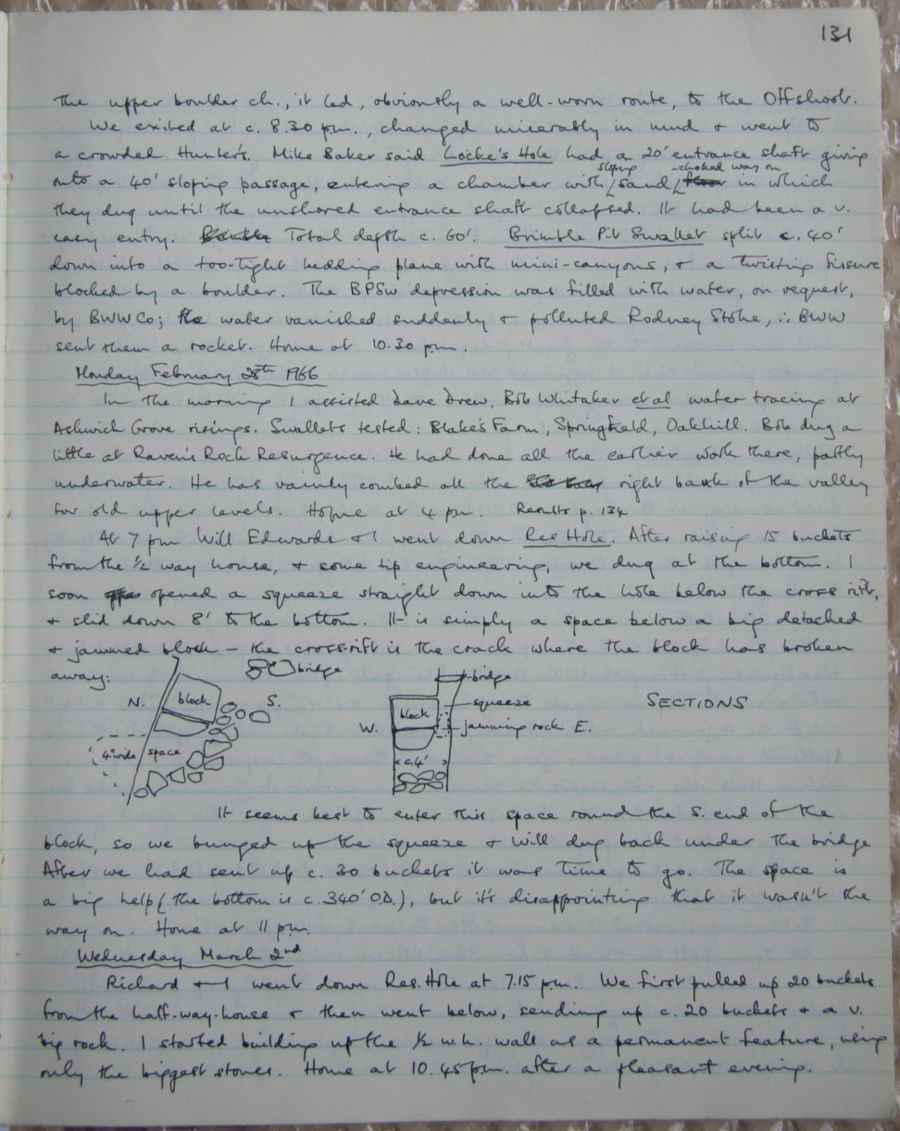 131
the upper boulder ch., it led, obviously a well-worn route, to the Offshoot.
We exited at c. 8.30 pm., changed miserably in mud & went to
a crowded Hunter's. Mike Baker said Locke's Hole had a 20' entrance shaft giving
sloping -choked way on
onto a 40' sloping passage, entering a chamber with sand floor in which
they dug until the unshored entrance shaft collapsed. It had been a v.
easy entry. Total depth c. 60'. Brimble Pit Swallet split c. 40'
down into a too-tight bedding plane with mini-canyons, & a twisting fissure
blocked by a boulder. The BPSw depression was filled with water, on request,
by BWWCo; the water vanished suddenly & polluted Rodney Stoke, ∴ BWW
sent them a rocket. Home at 10.30 pm.
Monday February 28th 1966
In the morning I assisted Dave Drew, Bob Whitaker et al water tracing at
Ashwick Grove risings. Swallets tested: Blake's Farm, Springfield, Oakhill. Bob dug a
little at Raven's Rock Resurgence. He had done all the earlier work there, partly
underwater. He has vainly combed all the right bank of the valley
for old upper levels. Home at 4 pm. Results p. 134
At 7 pm Will Edwards & I went down Res. Hole. After raising 15 buckets
from the ½ way house, & some tip engineering, we dug at the bottom. I
soon opened a squeeze straight down into the hole below the cross rift,
& slid down 8' to the bottom. It is simply a space below a big detached
& jammed block – the cross rift is the crack where the block has broken
away:
bridge
N. block S.
4' wide space
bridge
squeeze
W. block jamming rock E.
c. 4'
SECTIONS
It seems best to enter this space round the S. end of the
block, so we bunged up the squeeze & Will dug back under the bridge
After we had sent up c. 30 buckets it was time to go. The space is
a big help (the bottom is c. 340' O.D.), but it's disappointing that it wasn't the
way on. Home at 11 pm.
Wednesday March 2nd
Richard & I went down Res. Hole at 7.15 pm. We first pulled up 20 buckets
from the half-way-house & then went below, sending up c. 20 buckets & a v.
big rock. I started building up the ½ w.h. wall as a permanent feature, using
only the biggest stones. Home at 10.45 pm. after a pleasant evening.